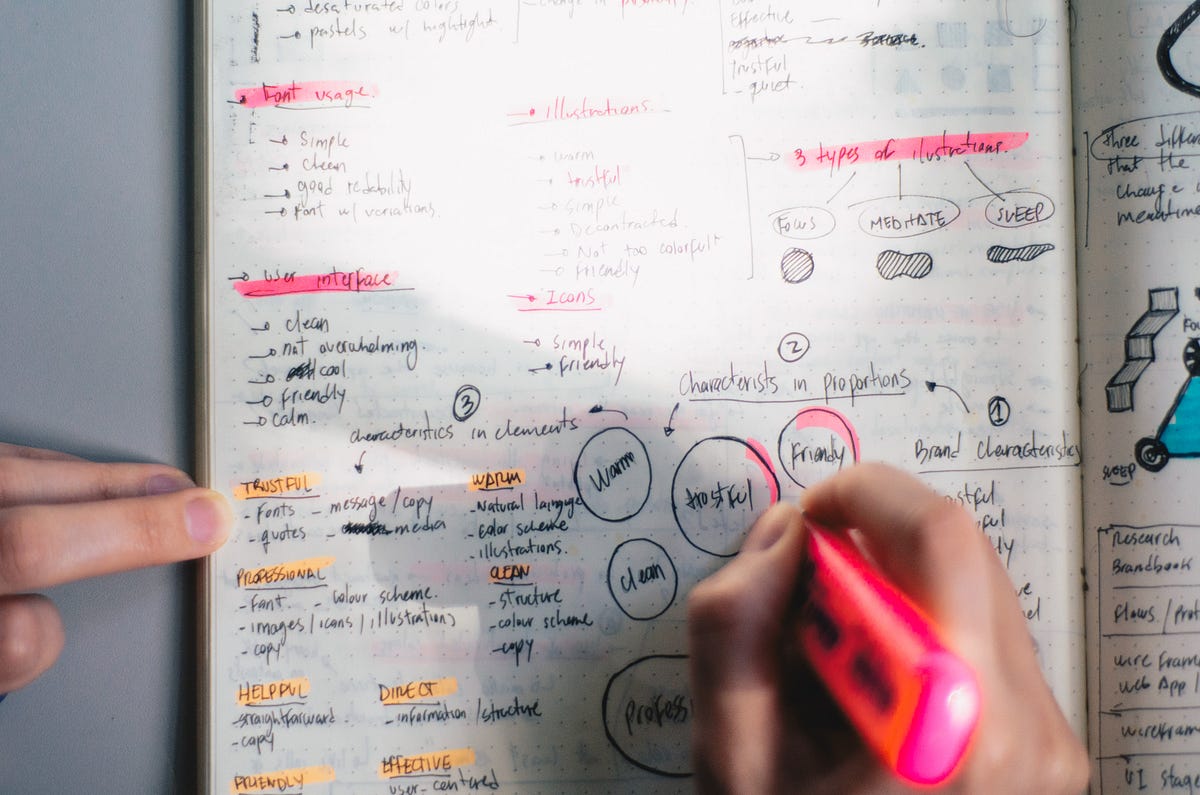 desaturated colors
pastels w/ highlight.
change in
Effective
trustful
- quiet.
Font usage.
Simple
clean
good redability
Font w/ variations.
User interface
clean
not overwhelming.
cool
Friendly
calm.
Illustrations.
warm
trustful
Simple
Decontracted.
Not too colorful
Friendly
Icons
Simple
Friendly
3 types of ilustrations.
Focus
MEDITATE
SLEEP
three differe
that the
change
meantime
Fo
SLEEP
1
Brand Characteristics
2
Characterists in proportions
3
characteristics in elements
Warm
trustful
Friendly
clean
profess
TRUSTFUL
- Fonts - message/copy
- quotes - media
WARM
- Natural language
- Color scheme
- illustrations.
PROFESSIONAL
- Font. - colour scheme.
- images/icons/illustrations
- copy
CLEAN
- structure
- colour scheme
- copy
HELPFUL
- straightforward
- copy
DIRECT
- information/structure
FRIENDLY
EFFECTIVE
user-centered
Research
Brandbook
Flows/Pro
wire Fram
web App/
wireFram
UI stag